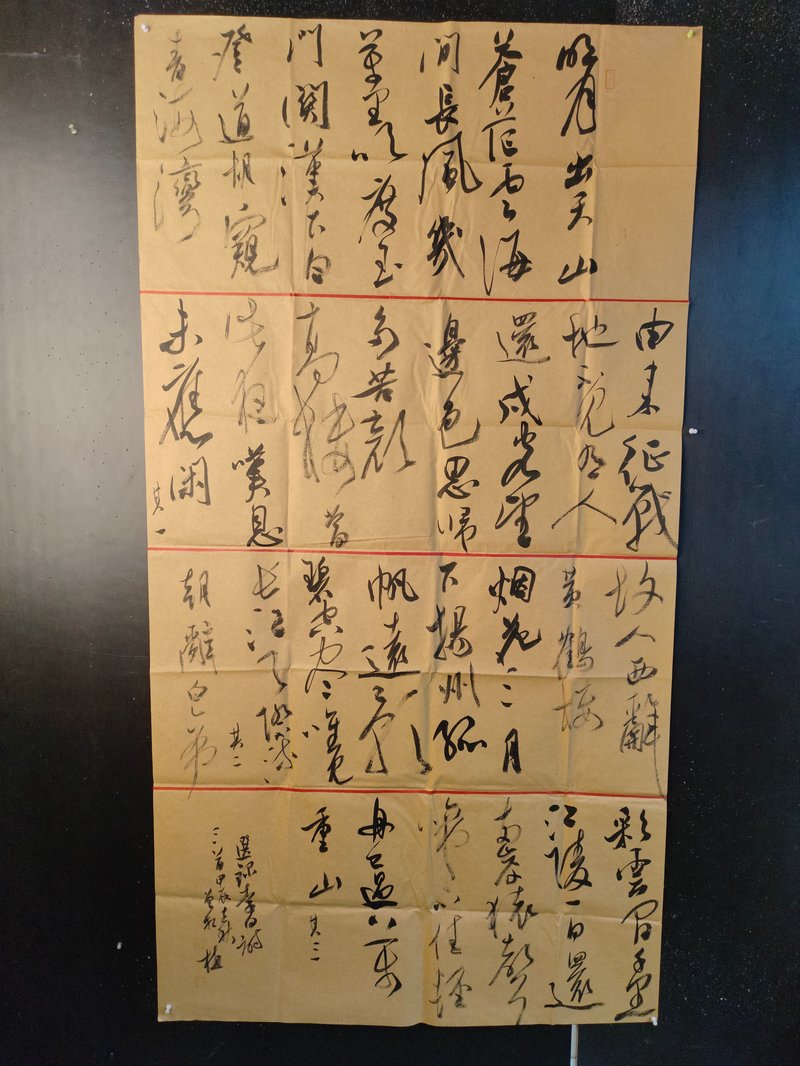 明月出天山
蒼茫雲海
間長風幾
萬里吹度玉
門關漢下白
登道胡窺
青海灣
由來征戰
地不見有人
還戍客望
邊色思歸
多苦顏
高樓當
此夜嘆息
未應閑 其一
故人西辭
黃鶴樓
烟花三月
下揚州孤
帆遠影
碧空尽唯見
長江天際流 其二
朝辭白帝
彩雲間千里
江陵一日還
兩岸猿聲
啼不住輕
舟已過萬
重山 其三
選錄李白詩
三首甲辰